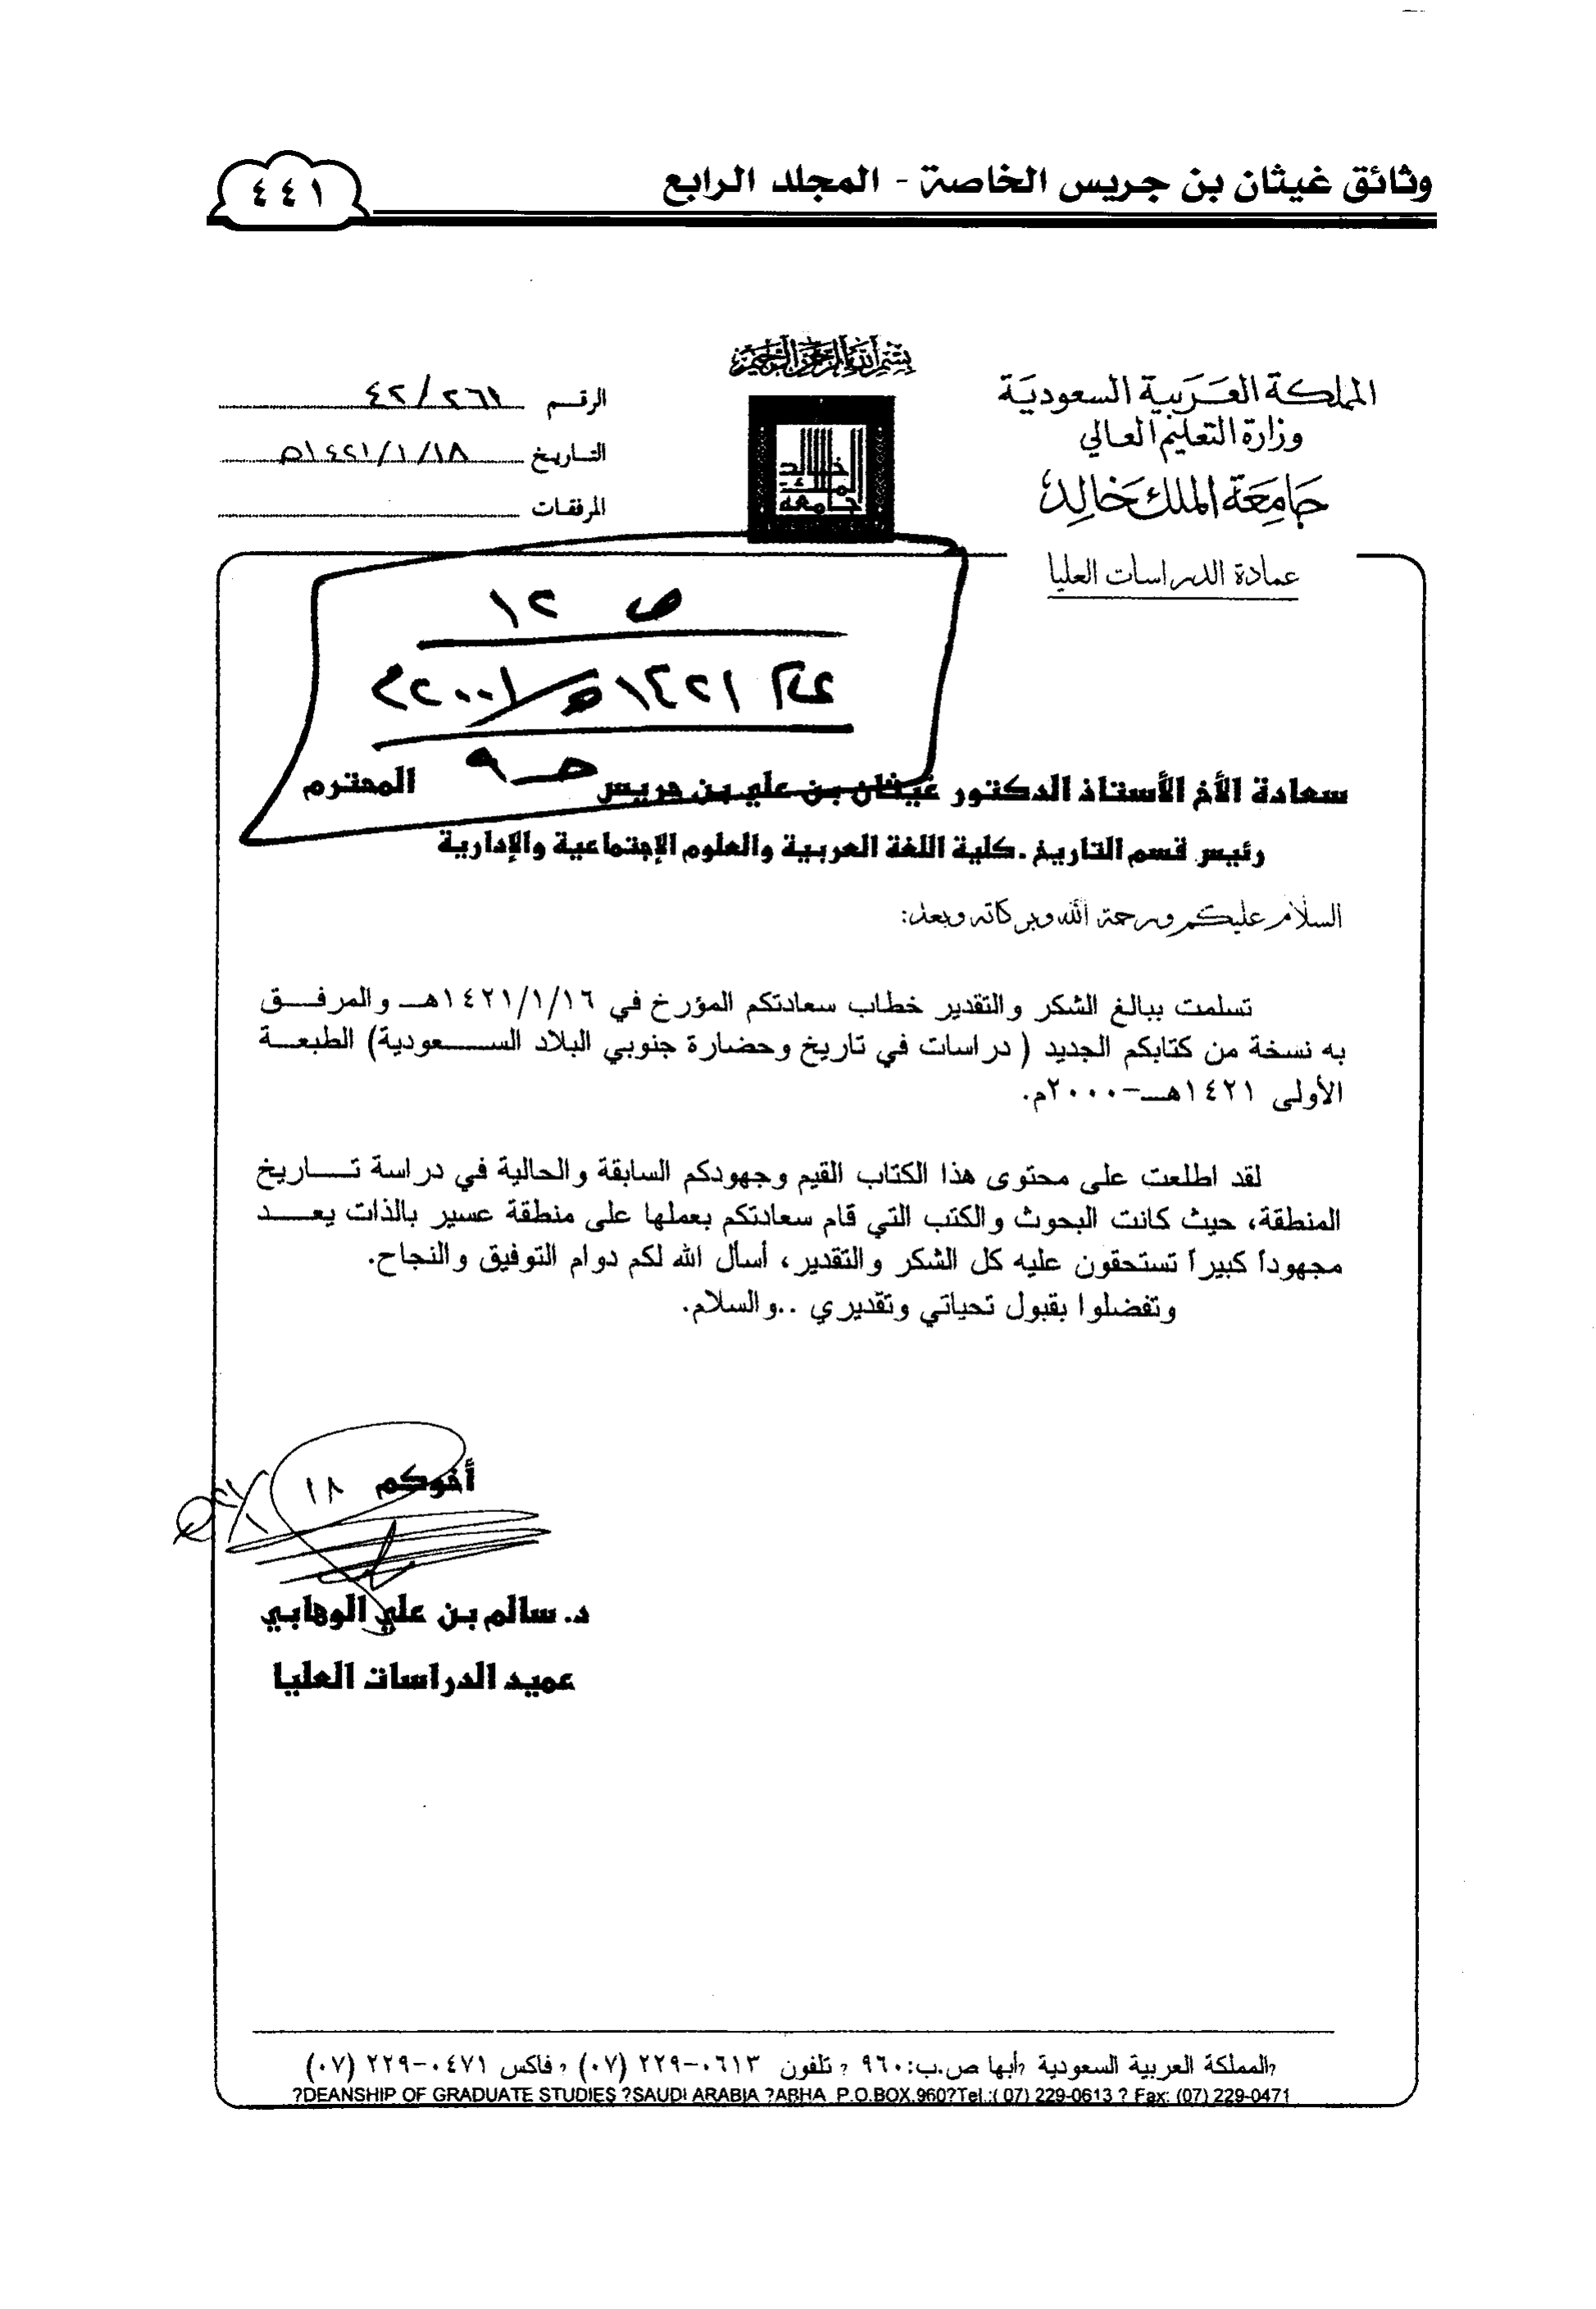 وثائق غيثان بن جريس الخاصة - المجلد الرابع
٤٤١
بسم الله الرحمن الرحيم
المملكة العربية السعودية
وزارة التعليم العالي
جامعة الملك خالد
عمادة الدراسات العليا
الرقم ٤٢/٢٦١
التاريخ ١٤٢١/١/١٨ه
المرفقات
جامعة الملك خالد
ص ١٢
١٤٢١ه/٢٠٠١م
حـ ٩
سعادة الأخ الأستاذ الدكتور غيثان بن علي بن جريس المحترم
رئيس قسم التاريخ .كلية اللغة العربية والعلوم الإجتماعية والإدارية
السلام عليكم ورحمة الله وبركاته وبعد:
تسلمت ببالغ الشكر والتقدير خطاب سعادتكم المؤرخ في ١٤٢١/١/١٦هـ والمرفق
به نسخة من كتابكم الجديد ( دراسات في تاريخ وحضارة جنوبي البلاد السعودية) الطبعة
الأولى ١٤٢١هـ-٢٠٠٠م.
لقد اطلعت على محتوى هذا الكتاب القيم وجهودكم السابقة والحالية في دراسة تاريخ
المنطقة، حيث كانت البحوث والكتب التي قام سعادتكم بعملها على منطقة عسير بالذات يعد
مجهوداً كبيراً تستحقون عليه كل الشكر والتقدير، أسأل الله لكم دوام التوفيق والنجاح.
وتفضلوا بقبول تحياتي وتقديري ..والسلام.
أخوكم ١٨
د. سالم بن علي الوهابي
عميد الدراسات العليا
?المملكة العربية السعودية ?أبها ص.ب:٩٦٠ ? تلفون ٠٦١٣-٢٢٩ (٠٧) ? فاكس ٠٤٧١-٢٢٩ (٠٧)
?DEANSHIP OF GRADUATE STUDIES ?SAUDI ARABIA ?ABHA P.O.BOX.960?Tel.:( 07) 229-0613 ? Fax: (07) 229-0471